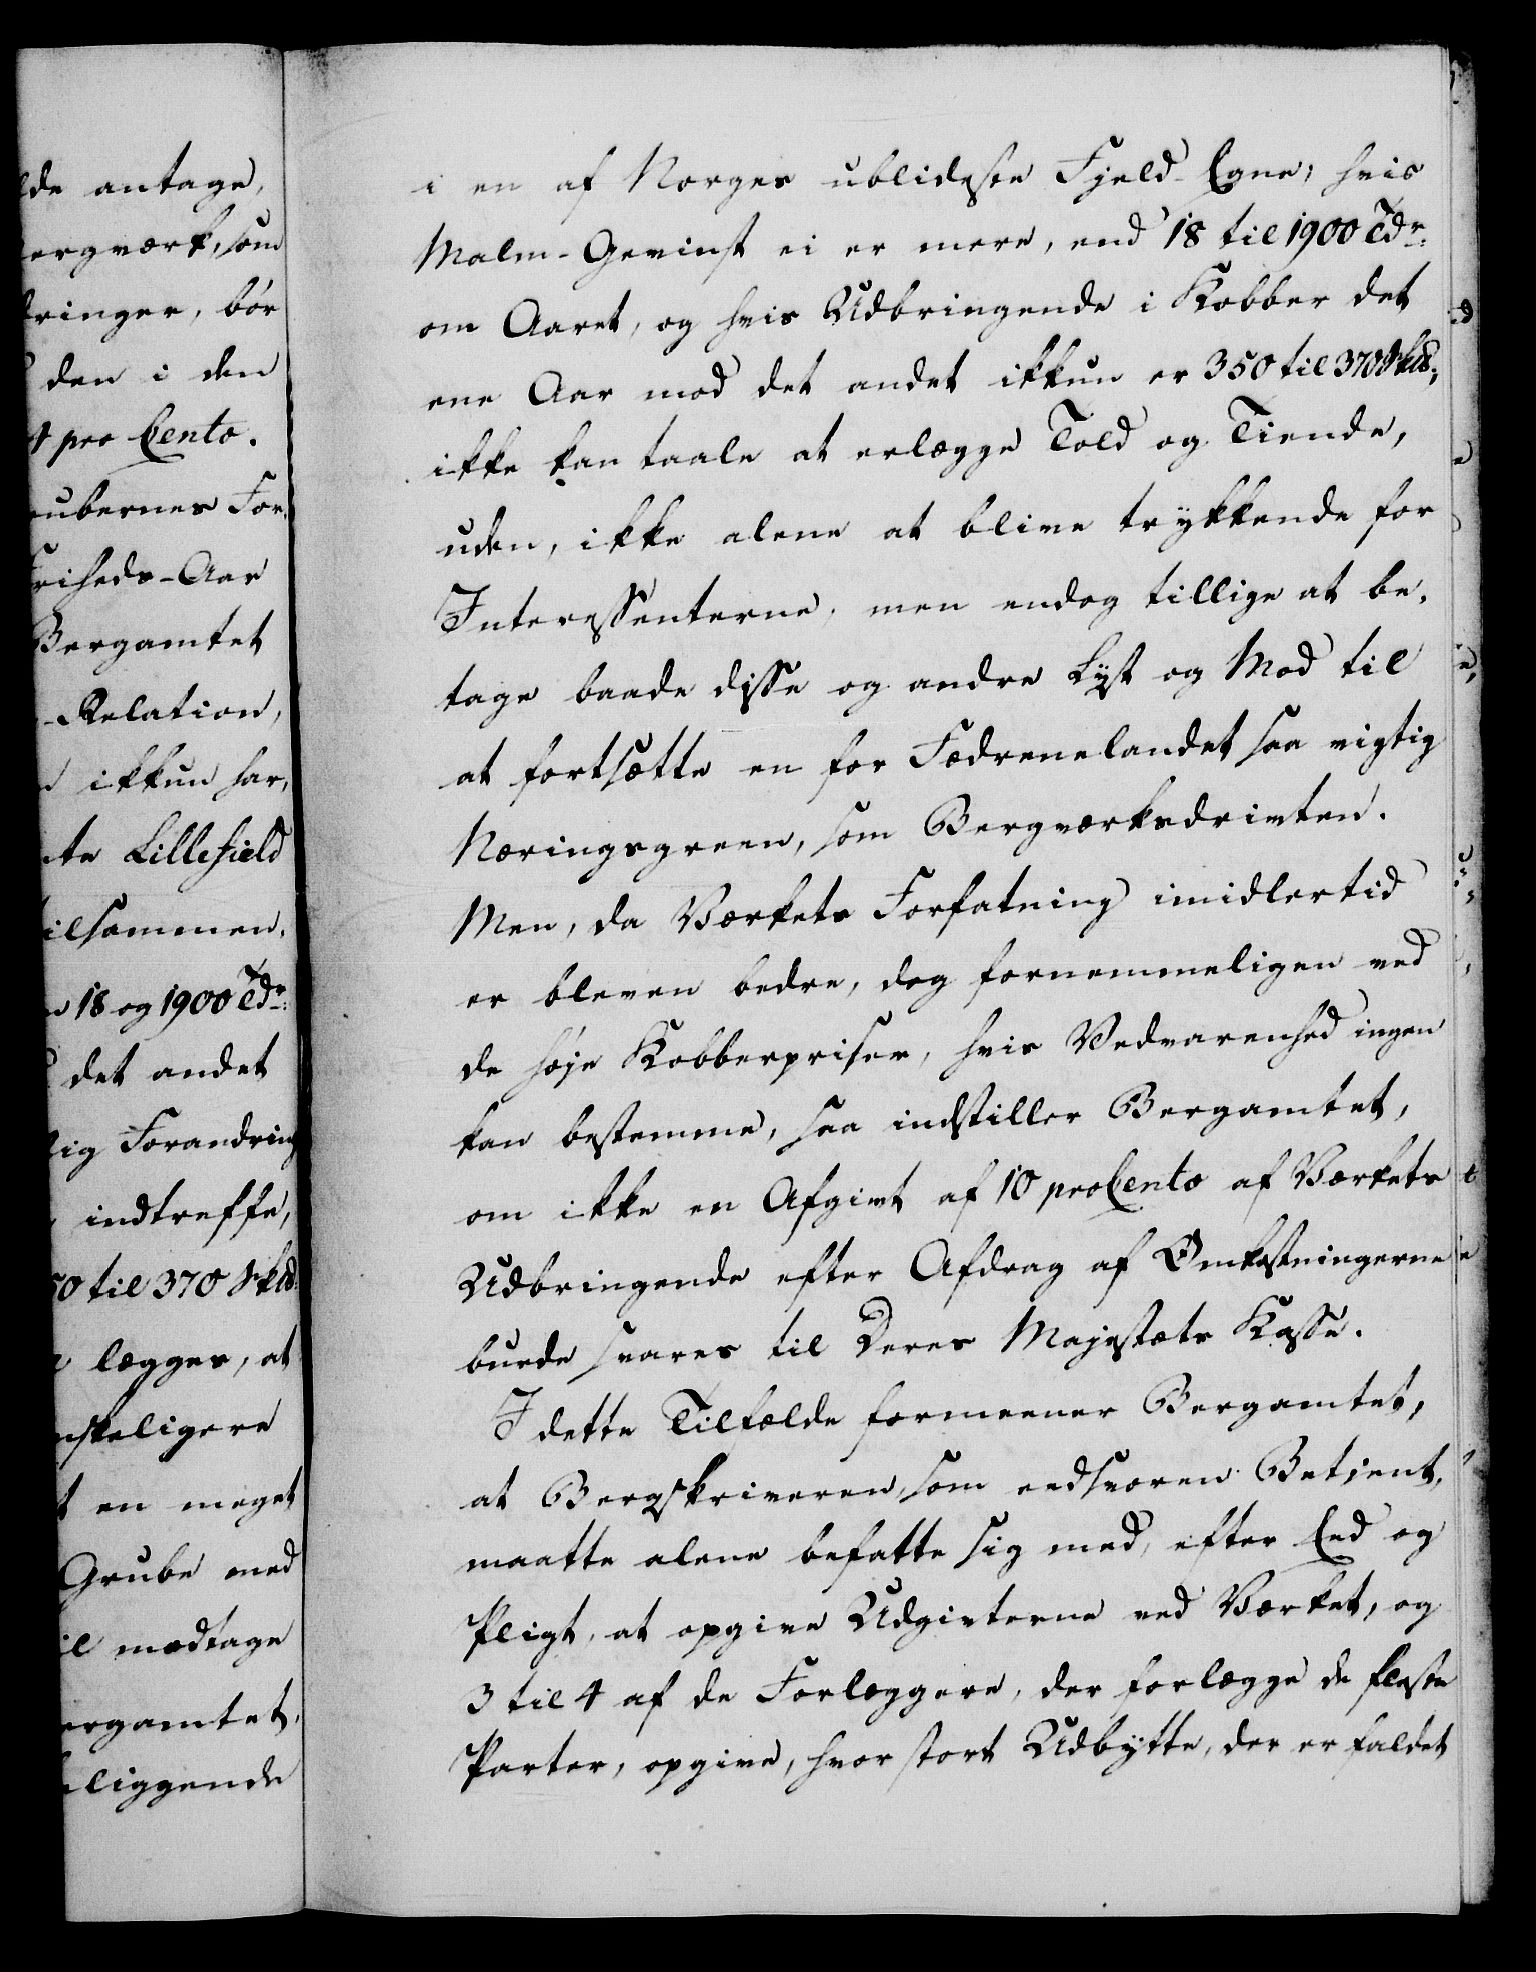 lde antage,
ergværk, som
bringer, bör
den i den
4 pro Cento.
rubernes For,
Friheds-Aar
Bergamtet
-Relation,
ikkun har,
te Lillefield
tilsammen.
18 og 1900 Tdr:
det andet
lig Forandring
indtreffe,
50 til 370 Skld
lægges, at
nskeligere
en meget
Grube med
il modtage
ergamtet,
liggende
i en af Norges ublideste Fjeld-Egne; hvis
Malm-Gevinst ei er mere, end 18 til 1900 Tdr:
om Aaret, og hvis Udbringende i Kobber det
ene Aar mod det andet ikkun er 350 til 370 Skld;
ikke kan taale at erlægge Told og Tiende,
uden, ikke alene at blive trykkende for
Interessenterne, men endog tillige at be,
tage baade disse og andre Lyst og Mod til
at fortsætte en for Fædrenelandet saa vigtig
Næringsgreen, som Bergværksdrivten.
Men, da Værkets Forfatning imidlertid
er bleven bedre, dog fornemmeligen ved
de höje Kobberpriser, hvis Vedvarenhed ingen
kan bestemme, saa indstiller Bergamtet,
om ikke en Afgivt af 10 pro Cento af Værkets
Udbringende efter Afdrag af Omkostningerne
burde svares til Deres Majestæts Kasse.
I dette Tilfælde formeener Bergamtet,
at Bergskriveren, som eedsvoren Betjent,
maatte alene befatte sig med, efter Eed og
Pligt, at opgive Udgivterne ved Værket, og
3 til 4 af de Forlæggere, der forlægge de fleste
Parter, opgive, hvor stort Udbytte, der er faldet